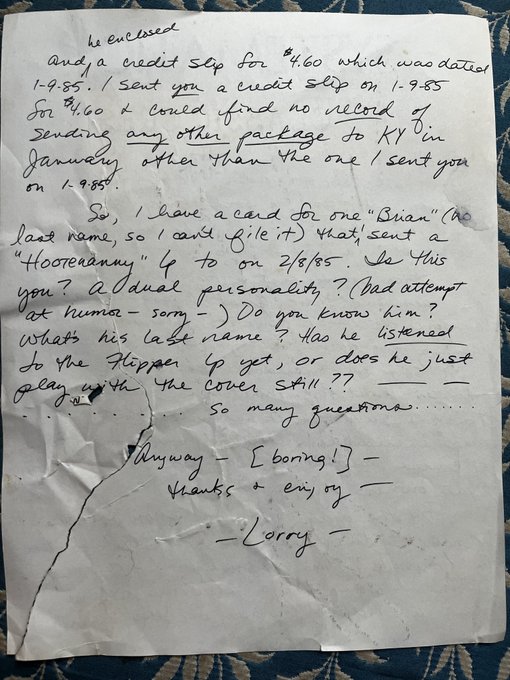 he enclosed
and, a credit slip for $4.60 which was dated
1-9-85. I sent you a credit slip on 1-9-85
for $4.60 & could find no record of
sending any other package to KY in
January other than the one I sent you
on 1-9-85.
So, I have a card for one "Brian" (no
last name, so I can't file it) that sent a
"Hootenanny" Lp to on 2/8/85. Is this
you? A dual personality? (bad attempt
at humor - sorry -) Do you know him?
What's his last name? Has he listened
to the Flipper Lp yet, or does he just
play with the cover still?? — —
. . . . . . . . . . . . so many questions . . . . . . .
Anyway - [boring!] -
thanks & enjoy -
- Lorry -